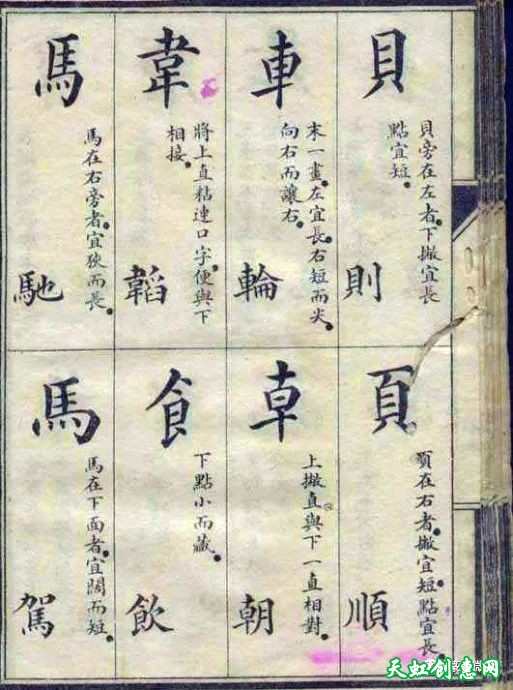 貝
貝旁在左者。下撇宜長
點宜短。
則
車
末一畫。左宜長。右短而尖。
向右而讓右。
輪
韋
將上直粘連口字。便與下
相接。
韜
馬
馬在右旁者。宜狹而長。
馳
頁
頁在右者。撇宜短。點宜長。
順
𠦝
上撇直與下一直相對。
朝
飠
下點小而藏。
飲
馬
馬在下面者。宜闊而短。
駕
天虹创意网